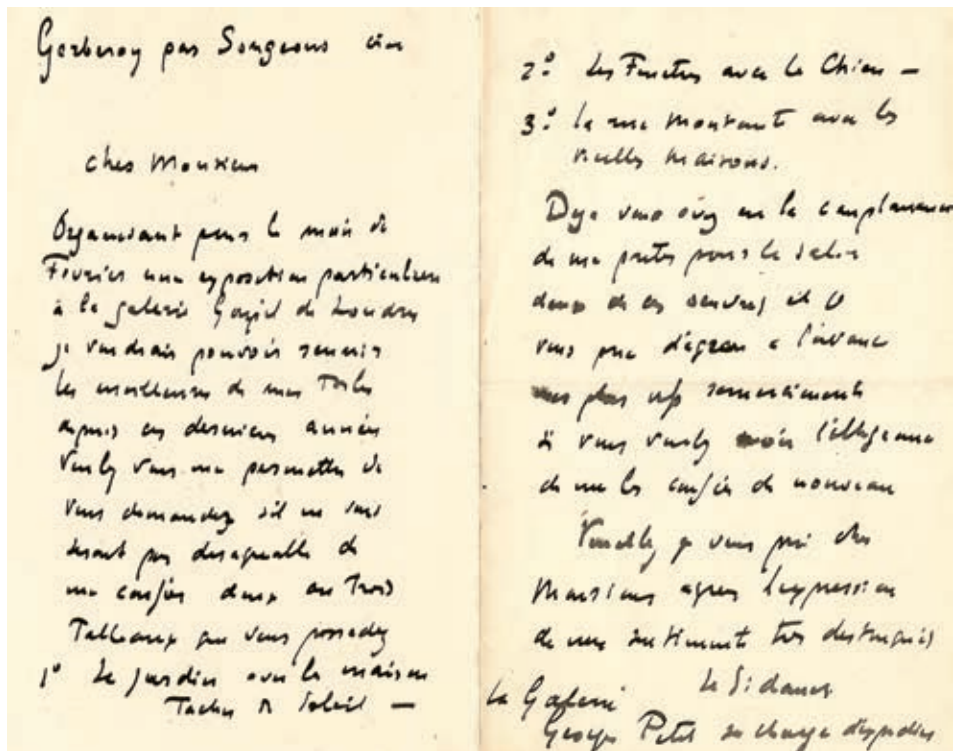 Gerberoy par Songeons Oise
cher Monsieur
Organisant pour le mois de
Fevrier une exposition particuliere
à la galerie Goupil de Londres
je voudrais pouvoir reunir
les meilleures de mes Toiles
depuis ces derniers années
Voulez vous me permettre de
vous demandez s'il ne vous
serait pas desagreable de
me confier deux ou Trois
Tableaux que vous possedez
1º Le Jardin avec la maison
Taches de Soleil —
2º Les Fenetres avec le Chien —
3º la rue Montante avec les
vieilles maisons.
Deja vous avez eu la complaisance
de me preter pour le Salon
deux de ces oeuvres et je
vous prie d'agreer a l'avance
mes plus vifs remerciements
si vous voulez avoir l'obligeance
de me les confier de nouveau
Veuillez je vous prie cher
Monsieur agreer l'expression
de mes sentiments tres distingués
Le Sidaner
La Galerie
Georges Petit se charge d'expedier